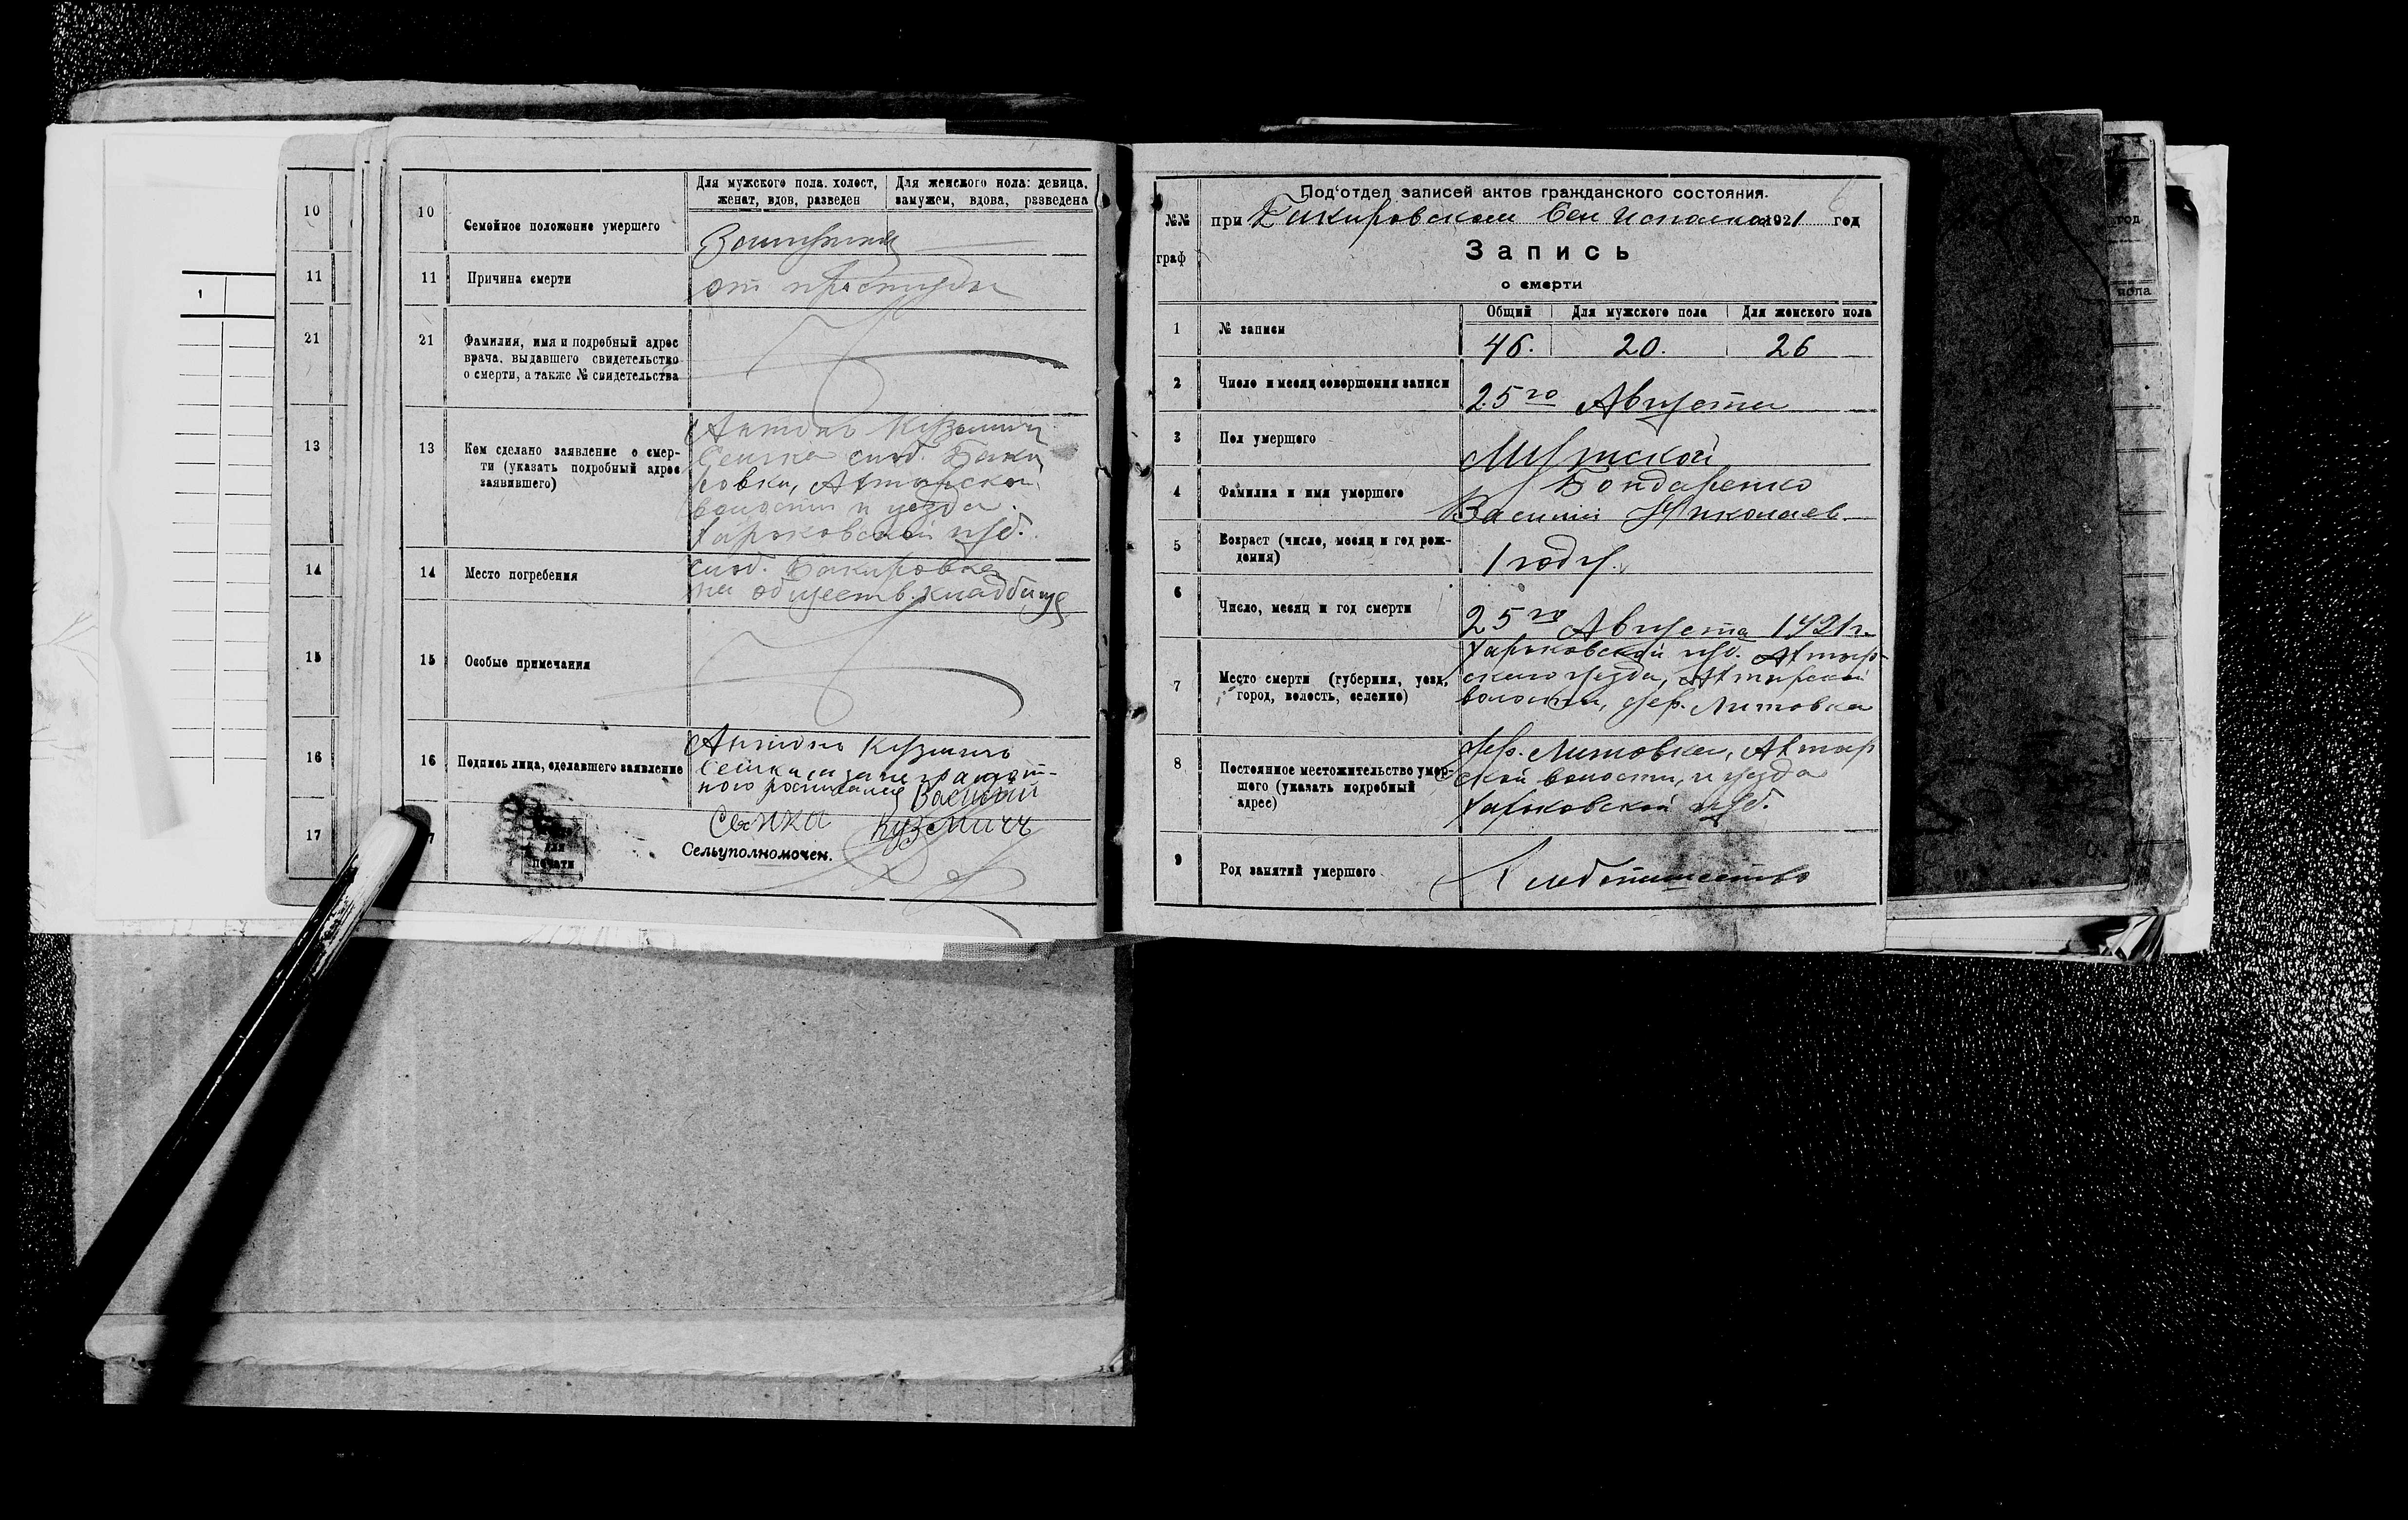 10
11
21
13
14
15
16
17
1
10
Семейное положение умершего
Для мужского пола. холост,
женат, вдов, разведен
Для женского пола: девица,
замужем, вдова, разведена
11
Причина смерти
от простуды
21
Фамилия, имя и подробный адрес
врача. выдавшего свидетельство
о смерти, а также № свидетельства
13
Кем сделано заявление о смер-
ти (указать подробный адрес
заявившего)
Антонъ Кузьмичъ
Сенька слоб. Баки
ровки, Ахтырской
волости и уезда
Харьковской губ.
14
Место погребения
слоб. Бакировка
на обществ. кладбище
15
Особые примечания
16
Подпись лица, сделавшего заявление
Антонъ Кузьмичъ
Сенька а за не грамот-
ного росписался Василий
Сенка Кузмичъ
17
для
печати
Сельуполномочен.
Под‘отдел записей актов гражданского состояния.
№№
граф
при Бакировском Сел Исполкоме 1921 год
Запись
о смерти
1
№ записи
Общий
Для мужского пола
Для женского пола
46.
20.
26
2
Число и месяц совершения записи
25го Августа
3
Пол умершего
Мужской
4
Фамилия и имя умершего
Бондаренко
Василий Николаев.
5
Возраст (число, месяц и год рож-
дения)
1 году.
6
Число, месяц и год смерти
25го Августа 1921 г.
7
Место смерти (губерния, уезд,
город, волость, селение)
Харьковской губ. Ахтыр-
ского уезда, Ахтырской
волости, хут. Литовка
8
Постоянное местожительство умер-
шего (указать подробный
адрес)
хут. Литовка, Ахтыр
ской волости, и уезда
Харьковской губ.
9
Род занятий умершего
Хлебопашество
год
пола